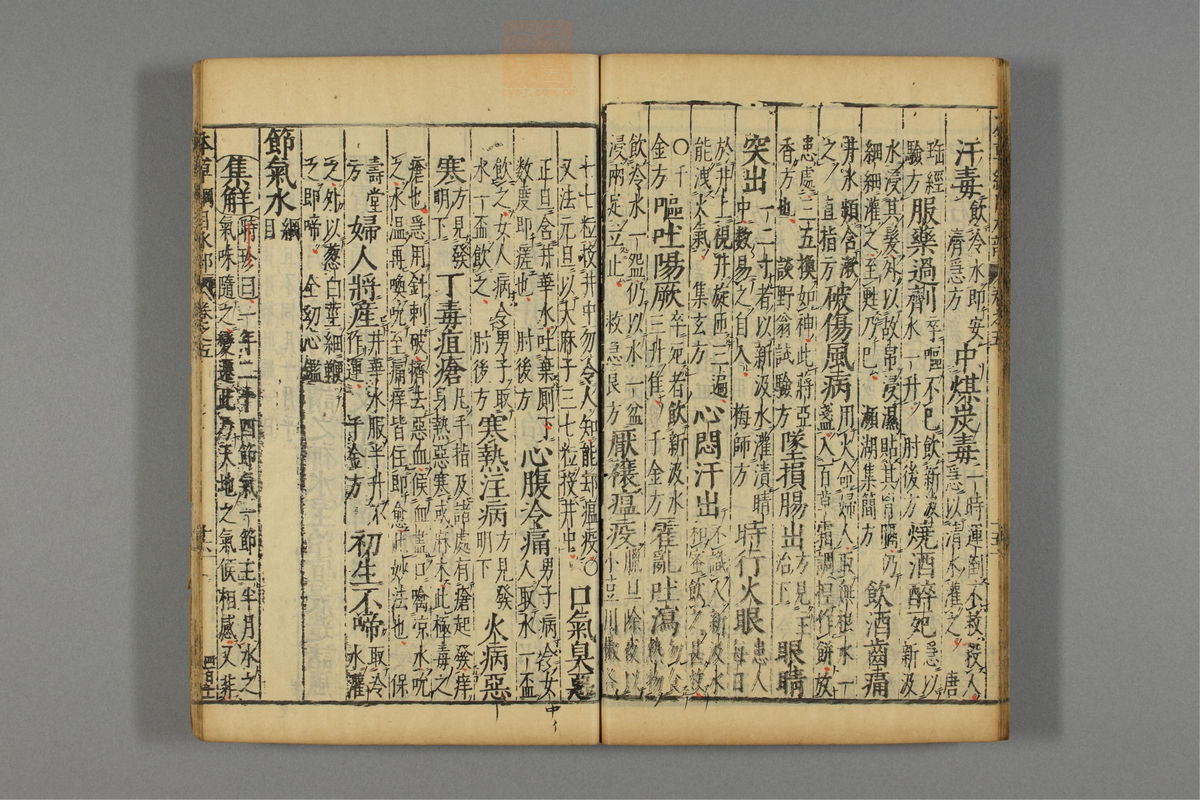 汗毒 飲冷水即安
濟急方 中煤炭毒 一時運倒不救殺人
急以清水灌之 唐
瑤經
驗方 服藥過劑 卒嘔不已飲新汲
水一升 肘後方 燒酒醉死 急以
新汲
水浸其髮外以故帛浸濕貼其胸膈仍
細細灌之至甦乃已 瀕湖集簡方 飲酒齒痛
井水頻含漱
之 直指方 破傷風病 用火命婦人取無根水一
盞入百草霜調捏作餅放
患處三五換如神此蔣亞
香方也 談野翁試驗方 墜損腸出 方見王
治下 眼睛
突出 一二寸者以新汲水灌漬睛
中數易之自入 梅師方 時行火眼 患人
每日
於井上視井旋匝三遍
能洩火氣 集玄方 心悶汗出 不識人新汲水
和蜜飲之甚妙
○千
金方 嘔吐陽厥 卒死者飲新汲水
三升佳 千金方 霍亂吐瀉 勿食
熱物
飲冷水一盌仍以水一盆
浸兩足立止 救急良方 厭禳瘟疫 臘旦除夜以
小豆川椒各
七七粒投井中勿令人知能却瘟疫○
又法元旦以大麻子三七粒投井中 口氣臭惡
正旦含井華水吐棄厠下
數度即瘥也 肘後方 心腹冷痛 男子病令女
人取水一盃
飲之女人病令男子取
水一盃飲之 肘後方 寒熱注病 方見發
明下 火病惡
寒 方見發
明下 丁毒疽瘡 凡手指及諸處有瘡起發痒
身熱惡寒或麻木此極毒之
瘡也急用針刺破擠去惡血候血盡口噙凉水吮
之水温再喚吮至痛痒皆住即愈此妙法也 保
壽堂
方 婦人將產 井華水服半升不
作運 千金方 初生不啼 取冷
水灌
之外以葱白莖細鞭
之即啼 全幼心鑑
節氣水 綱
目
集解 時珍曰一年二十四節氣一節主半月水之
氣味隨之變遷此乃天地之氣候相感又非